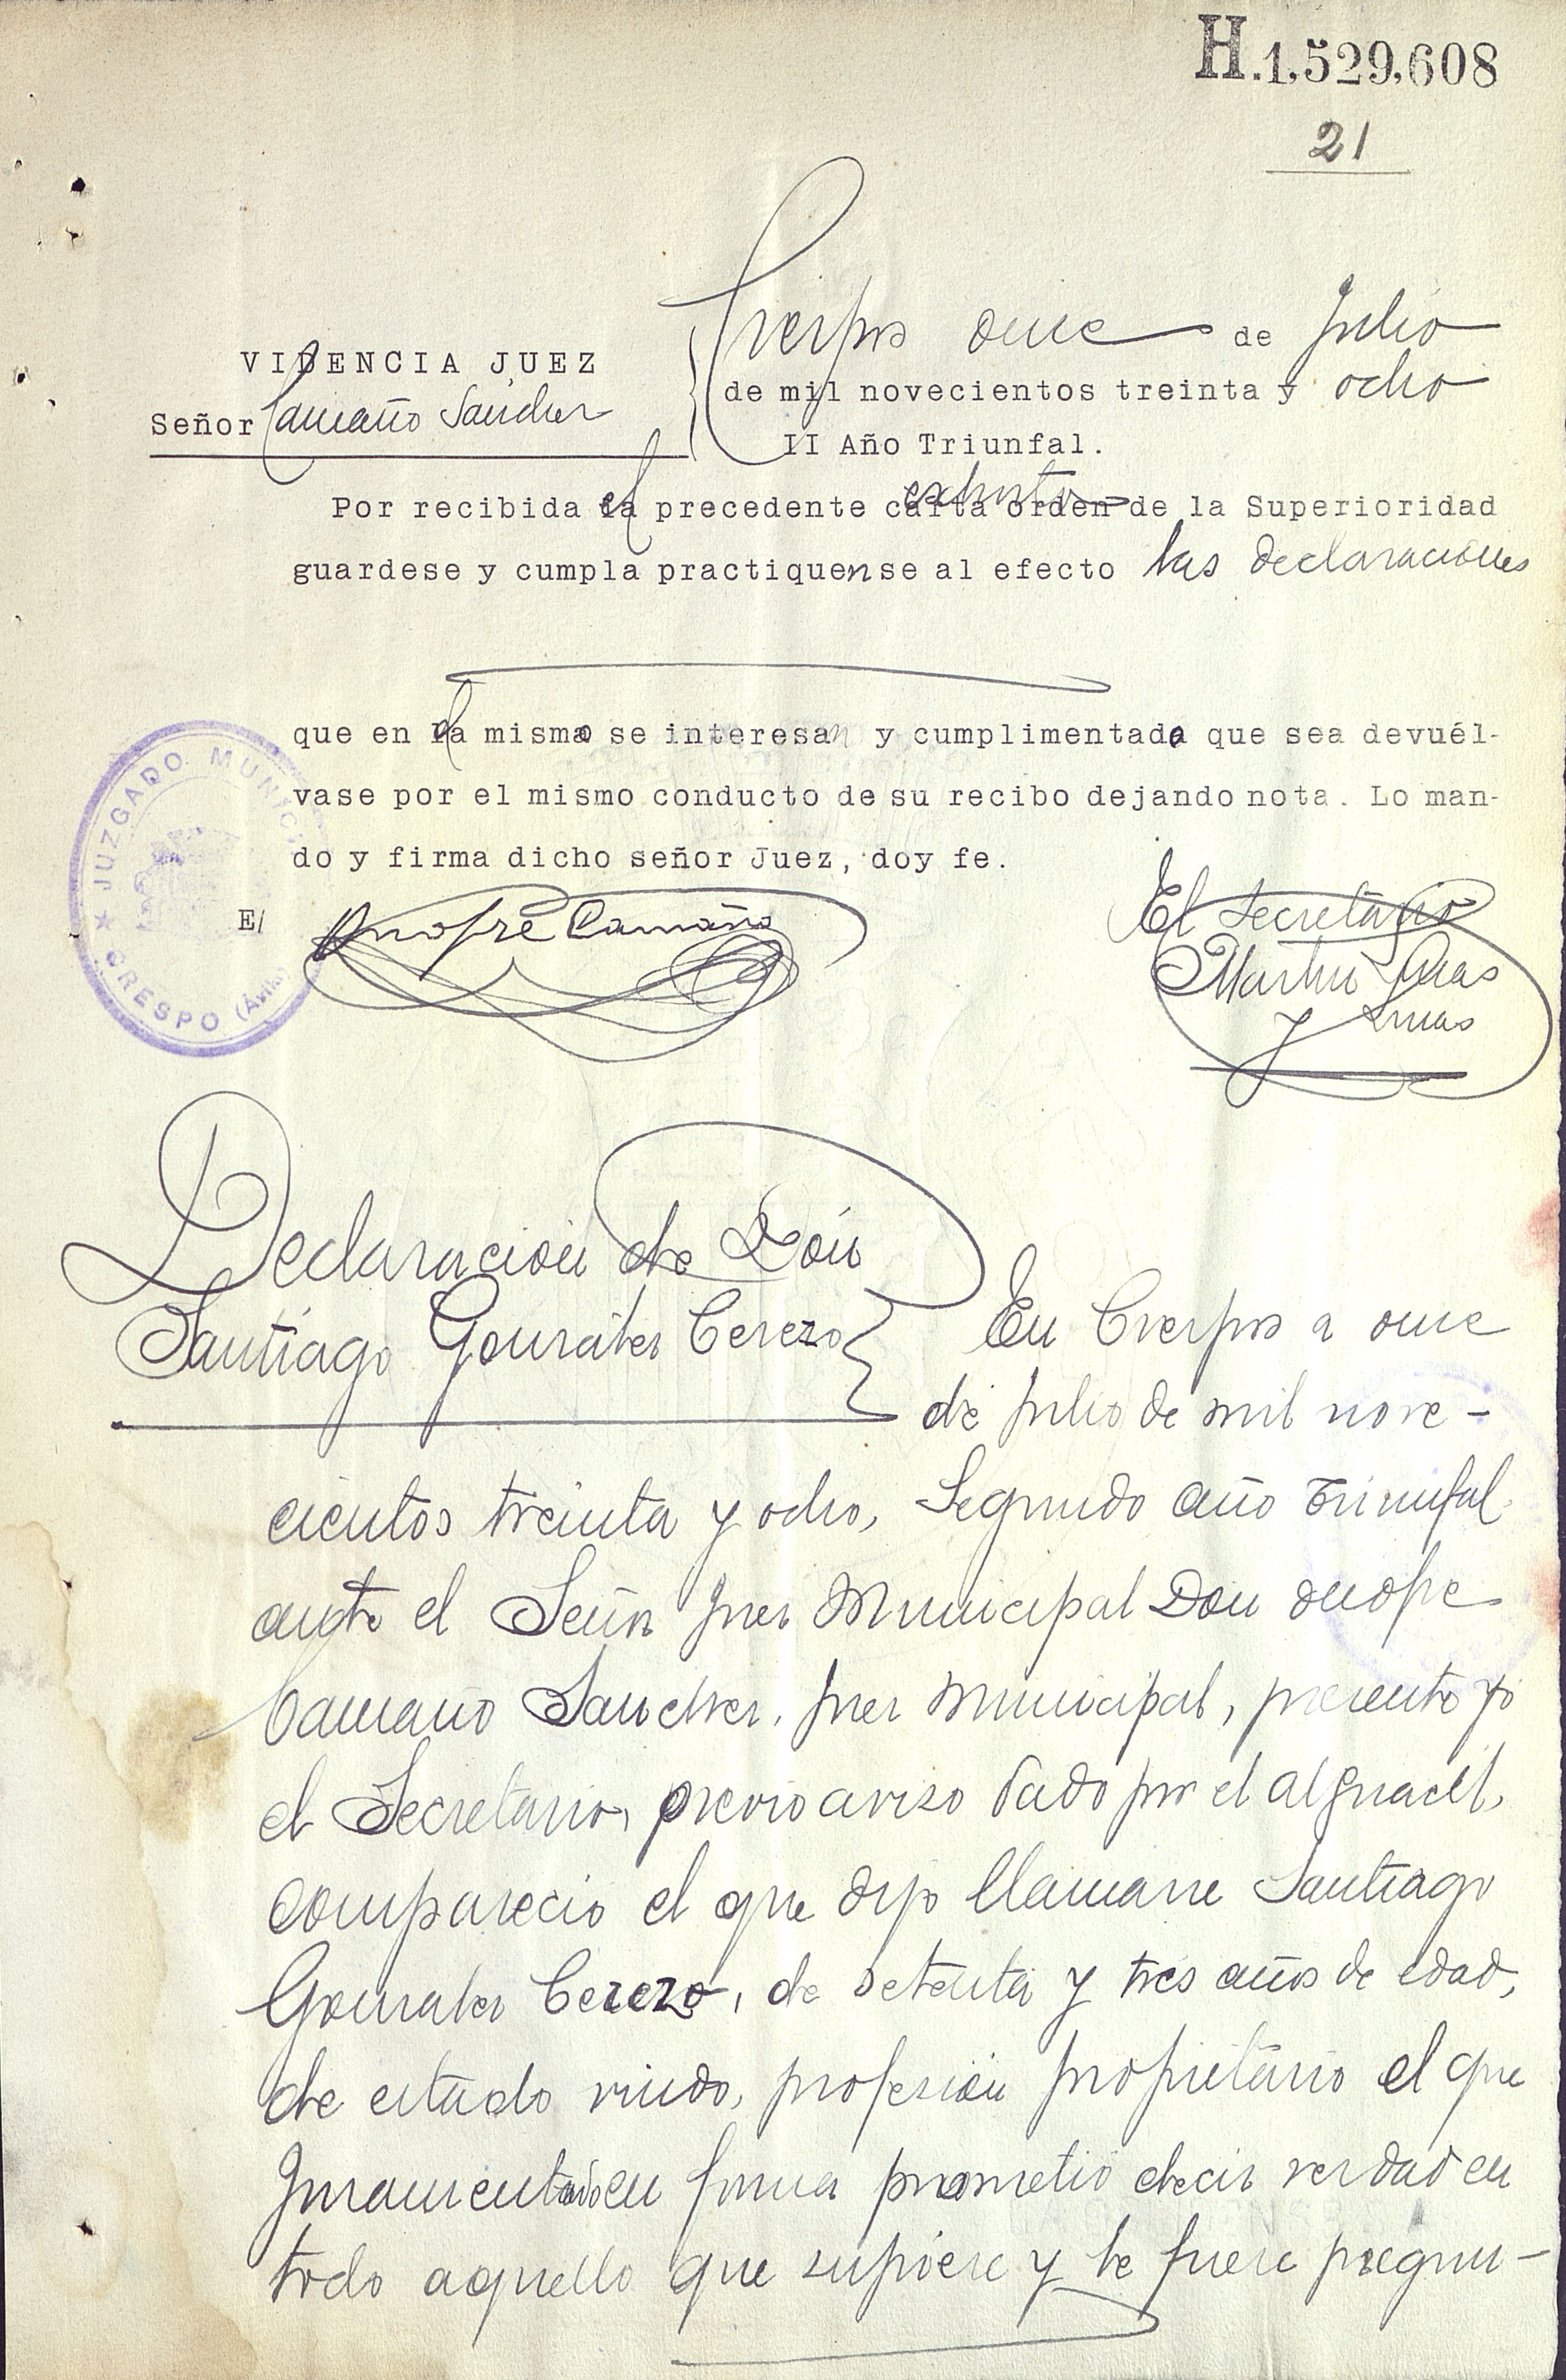 H.1,529,608
21
VIDENCIA JUEZ
Señor Camaño Sanchez
Crespos once de Julio
de mil novecientos treinta y ocho
II Año Triunfal.
Por recibida el precedente exhorto de la Superioridad
guardese y cumpla practiquense al efecto las declaraciones
que en el mismo se interesan y cumplimentado que sea devuél-
vase por el mismo conducto de su recibo dejando nota. Lo man-
do y firma dicho señor Juez, doy fe.
JUZGADO MUNICI
CRESPO (Avila)
El
Onofre Camaño
El Secretario
Martin
y
Declaracion de Don
Santiago Gonzalez Cerezo
En Crespos a once
de Julio de mil nove-
cientos treinta y ocho, Segundo año Triunfal
ante el Señor Juez Municipal Don Onofre
Camaño Sanchez, Juez Municipal, presente yo
el Secretario, previo aviso dado por el alguacil,
comparecio el que dijo llamarse Santiago
Gonzalez Cerezo, de setenta y tres años de edad,
de estado viudo, profesion propietario el que
Juramentado en forma prometio decir verdad en
todo aquello que supiere y le fuere pregun-